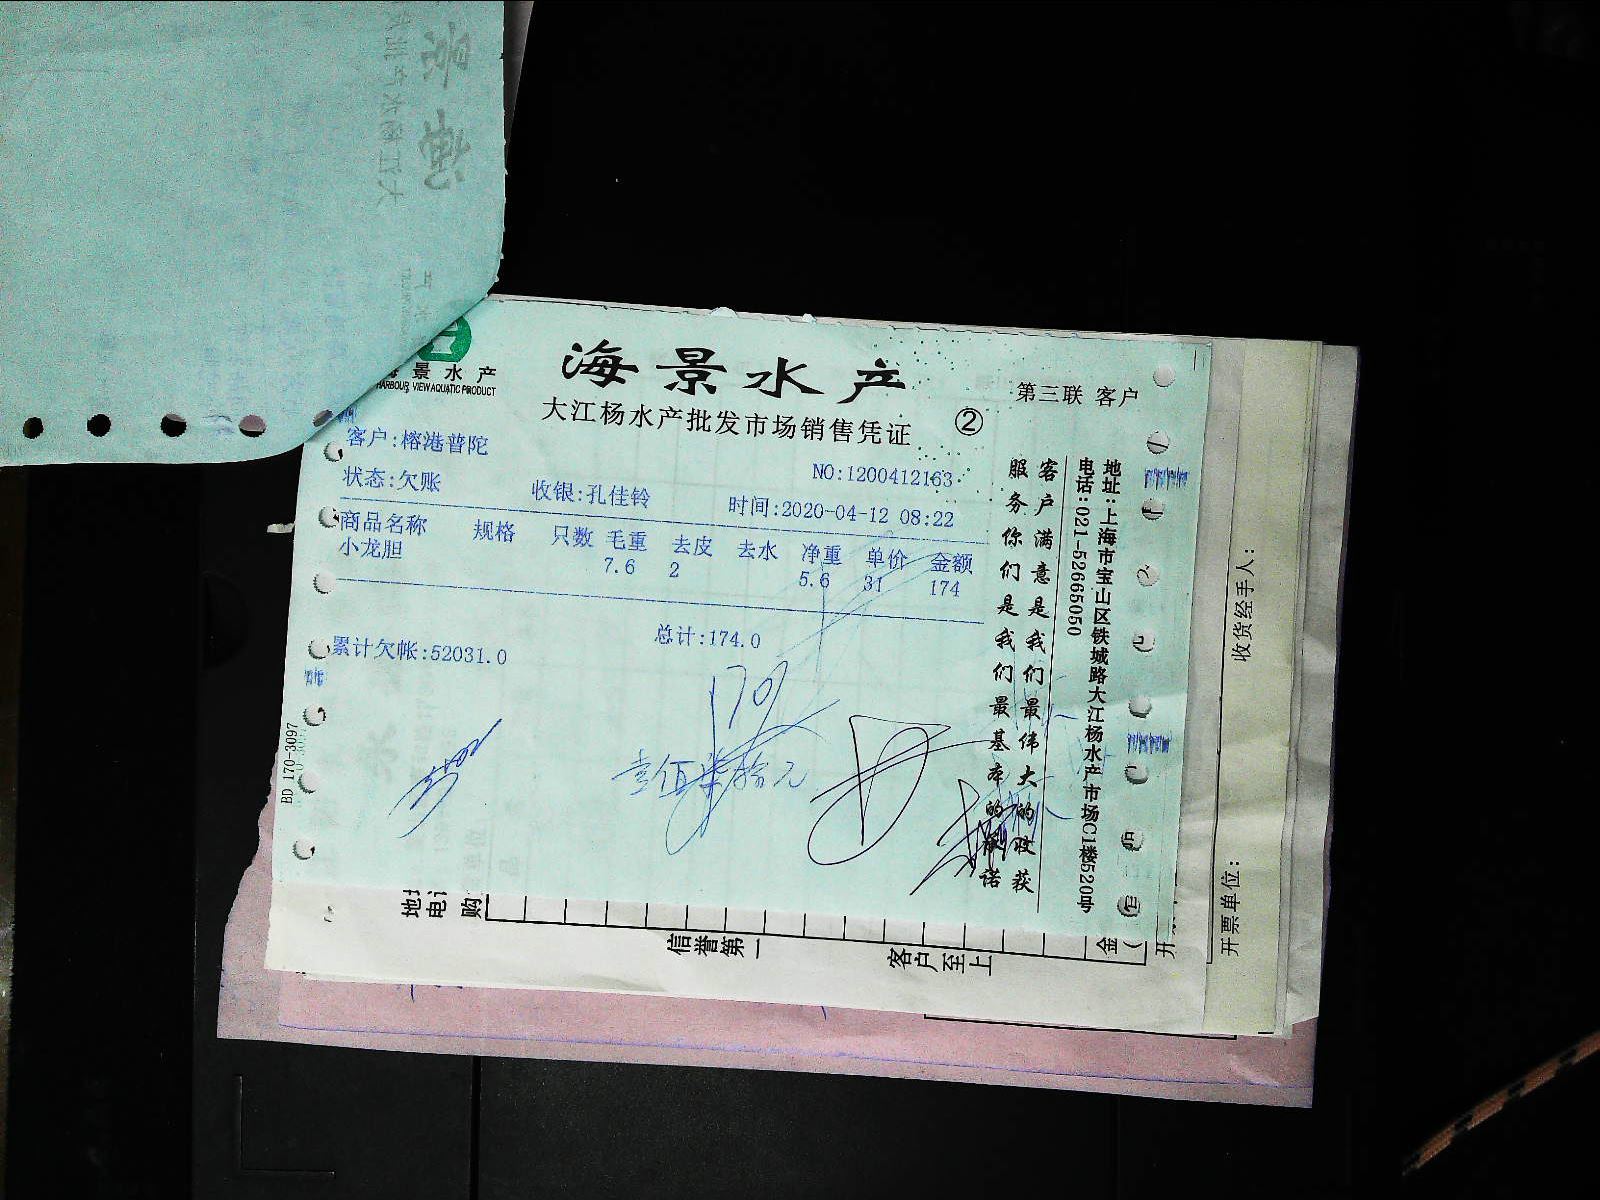 海景水产
HARBOUR VIEW AQUATIC PRODUCT
海景水产
大江杨水产批发市场销售凭证
②
第三联 客户
客户:榕港普陀
NO:1200412163
状态:欠账
收银:孔佳铃
时间:2020-04-12 08:22
商品名称 规格 只数 毛重 去皮 去水 净重 单价 金额
小龙胆 7.6 2 5.6 31 174
总计:174.0
累计欠帐:52031.0
170
壹佰柒拾元
客户满意是我们最伟大的收获
服务你们是我们最基本的承诺
地址:上海市宝山区铁城路大江杨水产市场C1楼520号
电话:021-52665050
BD 170-3097
收货经手人:
开票单位:
地
电
购
信誉第一
客户至上
金
开